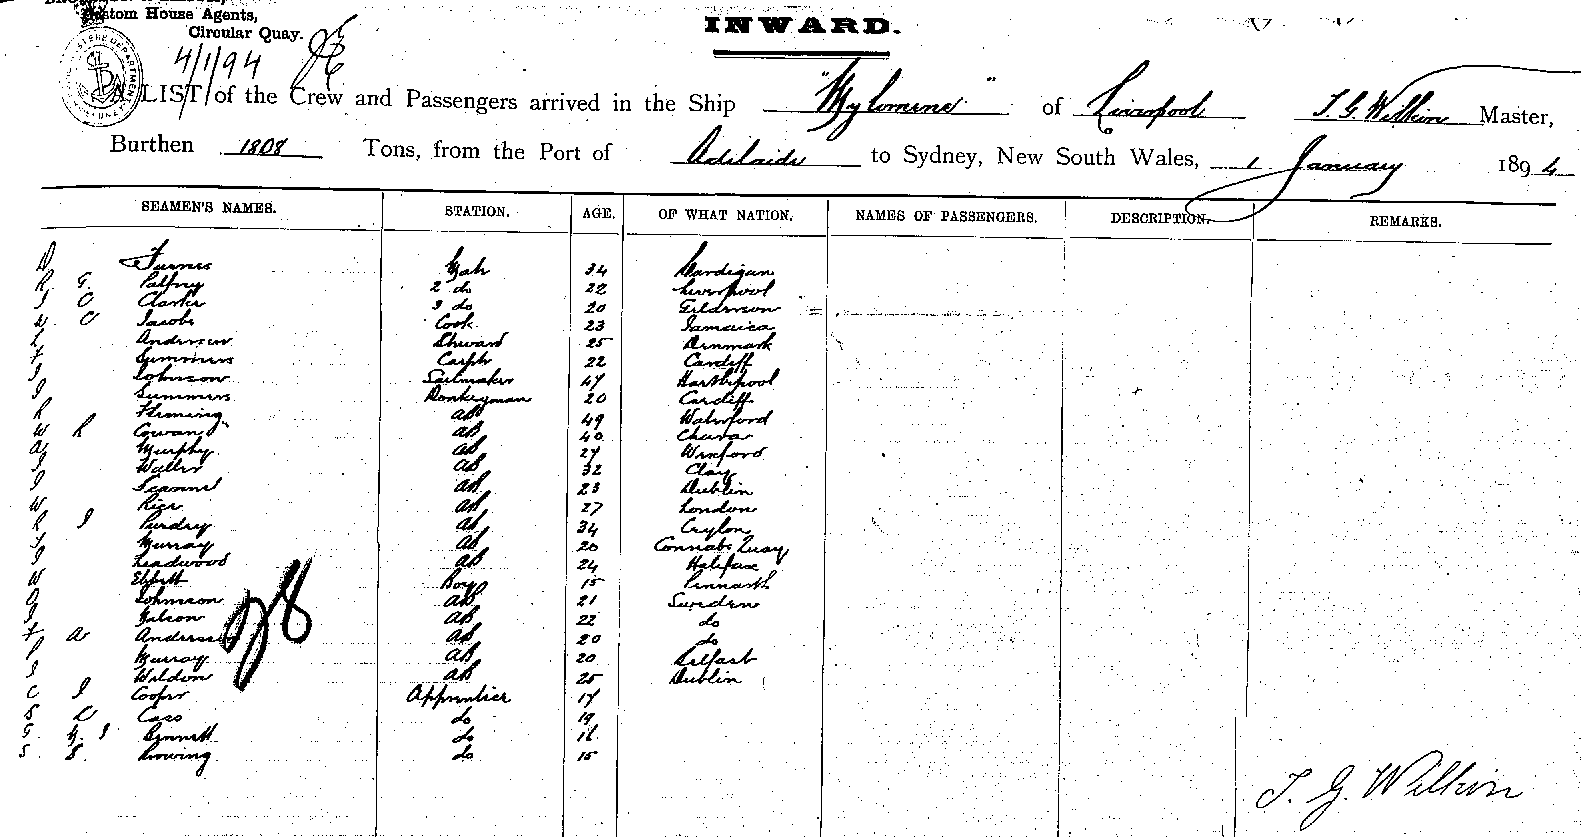 Custom House Agents,
Circular Quay.
4/1/94
INWARD.
A LIST of the Crew and Passengers arrived in the Ship "Mylomene" of Liverpool T. G. Wilkin Master,
Burthen 1808 Tons, from the Port of Adelaide to Sydney, New South Wales, 1 January 1894
SEAMEN'S NAMES. STATION. AGE. OF WHAT NATION. NAMES OF PASSENGERS. DESCRIPTION. REMARKS.
34 Cardigan
R. G. Palfrey 2 do 22 Liverpool
C Clarke 3 do 20
C Jacobs Cook 23 Jamaica
Andersen Steward 25 Denmark
Summers Carptr 22 Cardiff
Johnson Sailmaker 47 Hartlepool
Summers Donkeyman 20 Cardiff
R Fleming AB 49 Waterford
W R Cowan AB 40
Murphy AB 27 Wexford
Waller AB 32 Clay
AB 23 Dublin
W Rice AB 27 London
R J Purdey AB 34 Ceylon
Murray AB 20 Connahs Quay
Leadwood AB 24 Halifax
W Boy 15 Pennarth
Johnson AB 21 Sweden
AB 22 do
A Andersen AB 20 do
Murray AB 20 Belfast
Weldon AB 25 Dublin
C J Cooper Apprentice 17
Cass do 19
G. G. J Bennett do 16
S. do 15
T. G. Wilkin